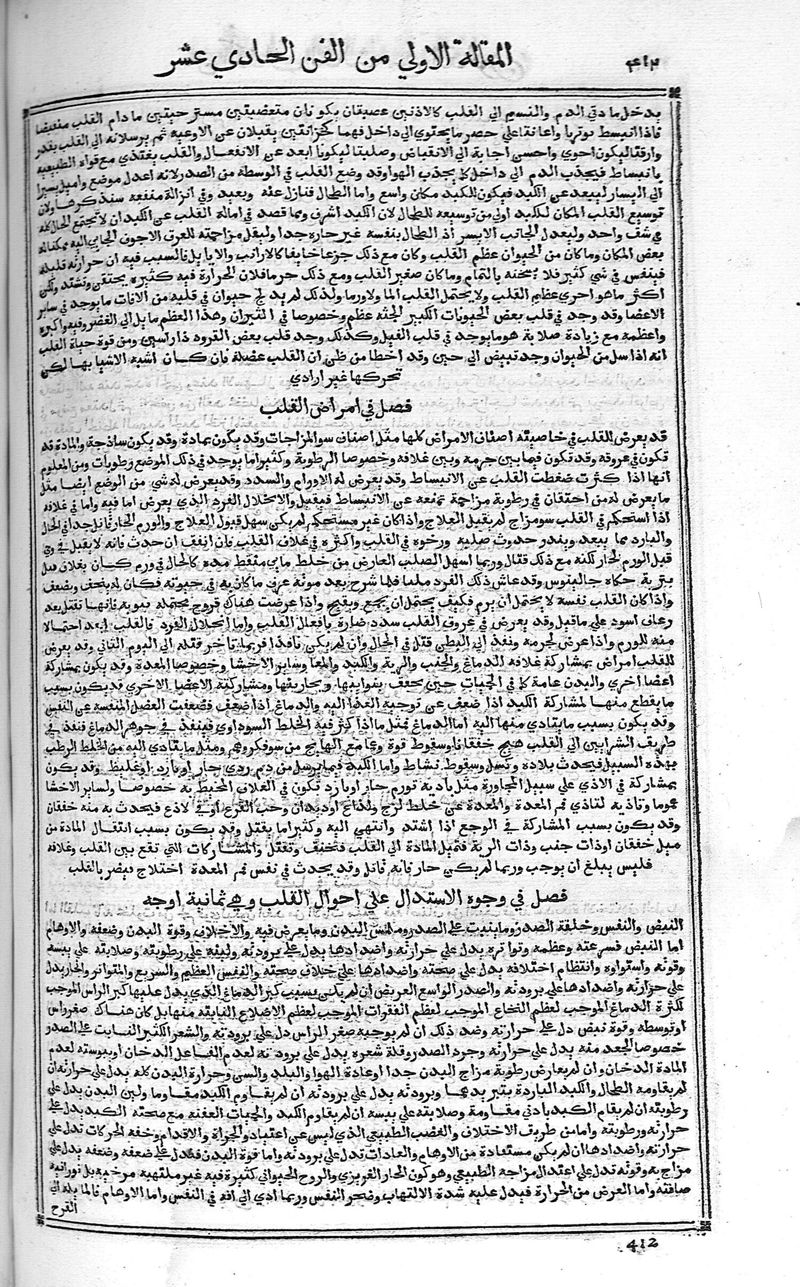 المقالة الاولي من الفن الحادي عشر
٤١٢
يدخل مادتي الدم والنسيم الي القلب كالاذنين عصبيتان يكونان متغضنتين مسترخيتين ما دام القلب منقبضا
فاذا انبسط توترتا واعانتا علي حصر ما يحتوي الي داخل فهما كخزانتين يقبلان عن الاوعية ثم يرسلانه الي القلب بقدر
وارقتا ليكون احوي واحسن اجابة الي الانقباض وصلبتا ليكونا ابعد عن الانفعال والقلب يغتذي مع قواه الطبيعية
بانبساط فيجذب الدم الي داخل كما يجذب الهوا وقد وضع القلب في الوسط من الصدر لانه اعدل موضع واميل يسيرا
الي اليسار ليبعد عن الكبد فيكون للكبد مكان واسع واما الطحال فنازل عنه وبعيد وفي انزاله منفعة سنذكرها ولان
توسيع القلب المكان للكبد اولي من توسيعه للطحال لان الكبد اشرف ومما قصد في امالة القلب عن الكبد ان لا تجتمع الحال كله
في شف واحد وليعدل الجانب الايسر اذ الطحال بنفسه غير حار جدا وليقل مزاحمته للعرق الاجوف الجايي اليه ممكنا له
بعض المكان وما كان من الحيوان عظيم القلب وكان مع ذلك جزعا خايفا كالارانب والايايل فالسبب فيه ان حرارته قليلة
فينفش في شي كثير فلا يسخنه بالتمام وما كان صغير القلب ومع ذلك جرما فلان الحرارة فيه كثيرة يحتقن وتشتد ولكن
اكثر ما هو اجري عظيم القلب ولا يحتمل القلب الما ولا ورما ولذلك لم يذبح حيوان في قلبه من الافات ما يوجد في ساير
الاعضا وقد وجد في قلب بعض الحيوانات الكبير الجثة عظم وخصوصا في الثيران وهذا العظم مايل الي الغضروفية واكبره
واعظمه مع زيادة صلابة هو ما يوجد في قلب الفيل وكذلك وجد قلب بعض القرود ذا راسين ومن قوة حياة القلب
انه اذا سل من الحيوان وجد ينبض الي حين وقد اخطا من ظن ان القلب عضلة وان كان اشبه الاشيا بها لكن
تحركها غير ارادي
فصل في امراض القلب
قد يعرض للقلب في خاصيته اصناف الامراض كلها مثل اصناف سو المزاجات وقد يكون بمادة وقد يكون ساذجة والمادة قد
تكون في عروقه وقد تكون فيما بين جرمه وبين غلافه وخصوصا الرطوبة وكثيرا ما يوجد في ذلك الموضع رطوبات ومن المعلوم
انها اذا كثرت ضغطت القلب عن الانبساط وقد يعرض له الاورام والسدد وقد يعرض له شي من الوضع ايضا مثل
ما يعرض له من احتقان في رطوبة مزاحمة تمنعه عن الانبساط فيقتل والانحلال الفرد الذي يعرض اما فيه واما في غلافه
اذا استحكم في القلب سو مزاج لم يقبل العلاج واذا كان غير مستحكم لم يكن سهل قبول العلاج والورم الحار قاتل جدا في الحال
والبارد مما يبعد ويندر حدوث صلبه ورخوه في القلب واكثره في غلاف القلب فان اتفق ان حدث فانه لا يقتل في وحي
قتل الورم الحار لكنه مع ذلك قتال وربما امهل الصلب العارض من خلط مايي منفط مدة كالحال في ورم كان بغلاف قلب
قرد حكاه جالينوس وقد عاش ذلك القرد مليا فلما شرح بعد موته عرف ما كان به في حيوته فكان انه ينحف ويضعف
واذا كان القلب نفسه لا يحتمل ان يرم فكيف يحتمل ان يجمع ويقيح واذا عرضت هناك قروح محتملة يومه فانها تقتل بعد
رعاف اسود علي ما قيل وقد يعرض في عروق القلب سدد ضارة بافعال القلب واما انحلال الفرد فالقلب ابعد احتمالا
منه للورم واذا عرض لجرمه ونفذ الي البطن قتل في الحال وان لم يكن نافذا فربما تاخر قتله الي اليوم الثاني وقد يعرض
للقلب امراض بمشاركة غلافه والدماغ والجنب والرية والكبد والمعا وساير الاحشا وخصوصا المعدة وقد يكون بمشاركة
اعضا اخري والبدن عامة كما في الحميات
وقد يكون بسبب ما يتادي منها اليه اما الدماغ فمثل ما اذا كثر فيه الخلط السوداوي فينفذ في جوهر الدماغ فنفذ في
طريق الشرايين الي القلب هيج خفقانا وسقوط قوة
بهذه السبيل فيحدث بلادة وكسل وسقوط نشاط واما الكبد فبما يرسل من دم ردي حار او بارد او غليظ وقد يكون
بمشاركة في الاذي علي سبيل المجاورة مثل ما تاديه تورم حار او بارد تكون في الغلاف المحيط به خصوصا ولساير الاحشا
عموما وتاذيه لتاذي فم المعدة والمعدة عن خلط لزج ولذاع او ديدان وحب القرع
وقد يكون بسبب المشاركة في الوجع اذا اشتد وانتهي اليه وكثيرا ما يقتل وقد يكون بسبب انتقال المادة من
مثل خفقان او ذات جنب وذات الرية فتميل المادة الي القلب فتخنق وتقتل والمشاركات التي تقع بين القلب وغلافه
فليس يبلغ ان يوجب وربما لم يكن حار فانه قاتل وقد يحدث في نفس فم المعدة اختلاج يضر بالقلب
فصل في وجوه الاستدلال علي احوال القلب وهي ثمانية اوجه
النبض والنفس وخلقة الصدر وما ينبت علي الصدر وملمس البدن وما يعرض فيه والاخلاق وقوة البدن وضعفه والاوهام
اما النبض فسرعته وعظمه وتواتره يدل علي حرارته واضدادها يدل علي برودته ولينه علي رطوبته وصلابته علي يبسه
وقوته واستواوه وانتظام اختلافه يدل علي صحته واضدادها علي خلاف صحته والنفس العظيم والسريع والمتواتر والحار يدل
علي حرارته واضدادها علي برودته والصدر الواسع العريض ان لم يكن بسبب كبر الدماغ الذي يدل عليها كبر الراس الموجب
لكثرة الدماغ الموجب لعظم النخاع الموجب لعظم الفقرات الموجب لعظم الاضلاع النابتة منها بل كان هناك صغر راس
او توسطه وقوة نبض دل علي حرارته وضد ذلك ان لم يوجبه صغر الراس دل علي برودته والشعر الكثير النابت علي الصدر
خصوصا الجعد منه يدل علي حرارته وجرد الصدر وقلة شعره يدل علي برودته لعدم الفاعل الدخان او يبوسته لعدم
المادة الدخان وان لم يعارض رطوبة مزاج البدن جدا او عادة الهوا والبلد والسن وحرارة البدن كله يدل علي حرارته ان
لم يقاومه الطحال والكبد الباردة بتبريدهما وبرودته يدل علي برودته ان لم يقاوم الكبد مقاوما ولين البدن يدل علي
رطوبته ان لم يقاوم الكبد بادني مقاومة وصلابته علي يبسه ان لم يقاوم الكبد والحميات العفنة مع صحة الكبد يدل علي
حرارته ورطوبته واما من طريق الاخلاق والغضب الطبيعي الذي ليس عن اعتياد والجراة والاقدام وخفة الحركات تدل علي
حرارته واضدادها ان لم يكن مستفادة من الاوهام والعادات تدل علي برودته واما قوة البدن فتدل علي ضعفه وضعفه يدل علي
مزاجه وقوته تدل علي اعتدال مزاجه الطبيعي وهو كون الحار الغريزي والروح الحيواني كثيرة فيه غير ملتهبة مرخية بل نورانية
صافية واما العرض من الحرارة فيدل عليه شدة الالتهاب وضجر النفس وربما ادي الي افة في النفس واما الاوهام فالمايلة الي
القرح
412